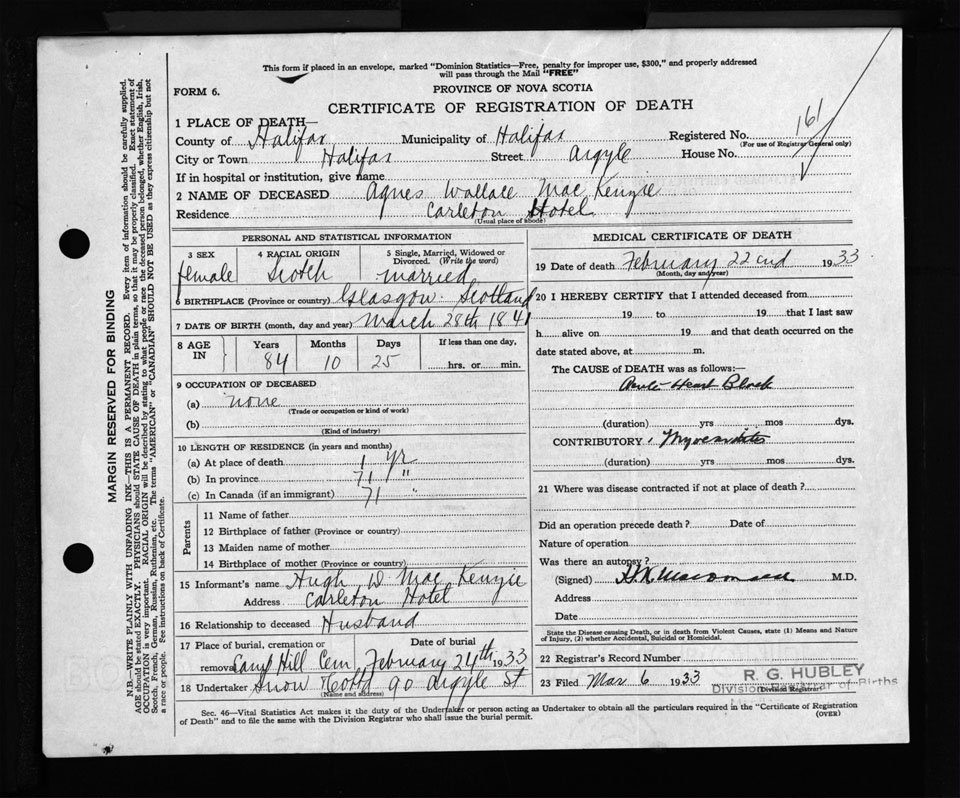 This form if placed in an envelope, marked "Dominion Statistics—Free, penalty for improper use, $300," and properly addressed
will pass through the Mail "FREE"
FORM 6.
PROVINCE OF NOVA SCOTIA
CERTIFICATE OF REGISTRATION OF DEATH
161
1 PLACE OF DEATH—
County of Halifax Municipality of Halifax Registered No.
(For use of Registrar General only)
City or Town Halifax Street Argyle House No.
If in hospital or institution, give name
2 NAME OF DECEASED Agnes Wallace MacKenzie
Residence Carleton Hotel
(Usual place of abode)
PERSONAL AND STATISTICAL INFORMATION
3 SEX 4 RACIAL ORIGIN 5 Single, Married, Widowed or
Divorced. (Write the word)
female Scotch married
6 BIRTHPLACE (Province or country) Glasgow Scotland
7 DATE OF BIRTH (month, day and year) March 28th 1841
8 AGE IN Years Months Days If less than one day,
84 10 25 hrs. or min.
9 OCCUPATION OF DECEASED
(a) none
(Trade or occupation or kind of work)
(b)
(Kind of industry)
10 LENGTH OF RESIDENCE (in years and months)
(a) At place of death 1 yr
(b) In province 71 "
(c) In Canada (if an immigrant) 71 "
Parents
11 Name of father
12 Birthplace of father (Province or country)
13 Maiden name of mother
14 Birthplace of mother (Province or country)
15 Informant's name Hugh W MacKenzie
Address Carleton Hotel
16 Relationship to deceased Husband
17 Place of burial, cremation or Date of burial
removal Camp Hill Cem February 24th 1933
18 Undertaker Snow 90 Argyle St
(Name and address)
MEDICAL CERTIFICATE OF DEATH
19 Date of death February 22nd 1933
(Month, day and year)
20 I HEREBY CERTIFY that I attended deceased from
19 to 19 that I last saw
h alive on 19 and that death occurred on
date stated above, at m.
The CAUSE of DEATH was as follows:—
Acute Heart Block
(duration) yrs mos dys.
CONTRIBUTORY Myocarditis
(duration) yrs mos dys.
21 Where was disease contracted if not at place of death?
Did an operation precede death? Date of
Nature of operation
Was there an autopsy?
(Signed) M.D.
Address
Date
State the Disease causing Death, or in death from Violent Causes, state (1) Means and Nature
of Injury, (2) whether Accidental, Suicidal or Homicidal.
22 Registrar's Record Number
23 Filed Mar 6 1933
R. G. HUBLEY
Division Registrar of Births
(Division Registrar)
Sec. 46—Vital Statistics Act makes it the duty of the Undertaker or person acting as Undertaker to obtain all the particulars required in the "Certificate of Registration
of Death" and to file the same with the Division Registrar who shall issue the burial permit.
(OVER)
MARGIN RESERVED FOR BINDING
N.B.—WRITE PLAINLY WITH UNFADING INK—THIS IS A PERMANENT RECORD. Every item of information should be carefully supplied.
AGE should be stated EXACTLY. PHYSICIANS should STATE CAUSE OF DEATH in plain terms, so that it may be properly classified. Exact statement of
OCCUPATION is very important. RACIAL ORIGIN will be described by stating to what people or race the deceased person belonged, whether English, Irish,
Scotch, French, German, Russian, Ruthenian, etc. The terms "AMERICAN" or "CANADIAN" SHOULD NOT BE USED as they express citizenship but not
a race or people. See instructions on back of Certificate.